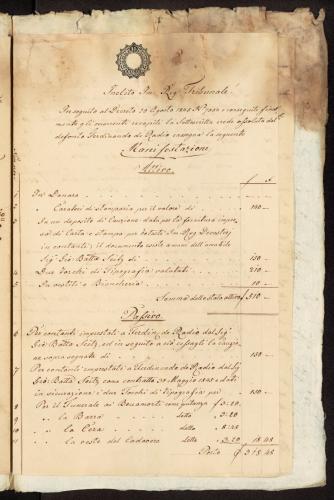 Inclito Imp. Reg. Tribunale.
In seguito al Decreto 20 Agosto 1848 N° e conseguito final-
mente gli occorrenti recapiti la Sottoscritta erede assoluta del
defonto Ferdinando de Radio rassegna la seguente
Manifestazione
Attivo.
f
1 Per Danaro
2 " Caratteri di Stamperia pel il valore di 140
3 In un deposito di Cauzione dato per la fornitura impre-
sa di Carta e Stampa per
in contanti; il documento esiste a mani dell'amabile
Sig.r Gio: Batta Seitz di 150
4 Due Torchi di Tipografia valutati 210
5 In vestiti e Biancheria 10
Somma dello stato attivo f 510
Passivo.
6 Per contanti imprestati a Ferdin. de Radio dal Sig.r
Gio: Batta Seitz, ed in seguito a ciò la cauzio-
ne sopra segnata di 150
7 Per contanti imprestati a Ferdinando de Radio dal Sig.r
Gio: Batta Seitz come contratto 30 Maggio 1845 e dati
in sicurazione i due Torchi di Tipografia per 150
8 Per il Funerale ai Becamorti f 3.20
9 " la Bara detto 3.20
10 " la Cera detto 8.48
11 " la veste del Cadavere detto 3.20 18.48
Porto f 318.48